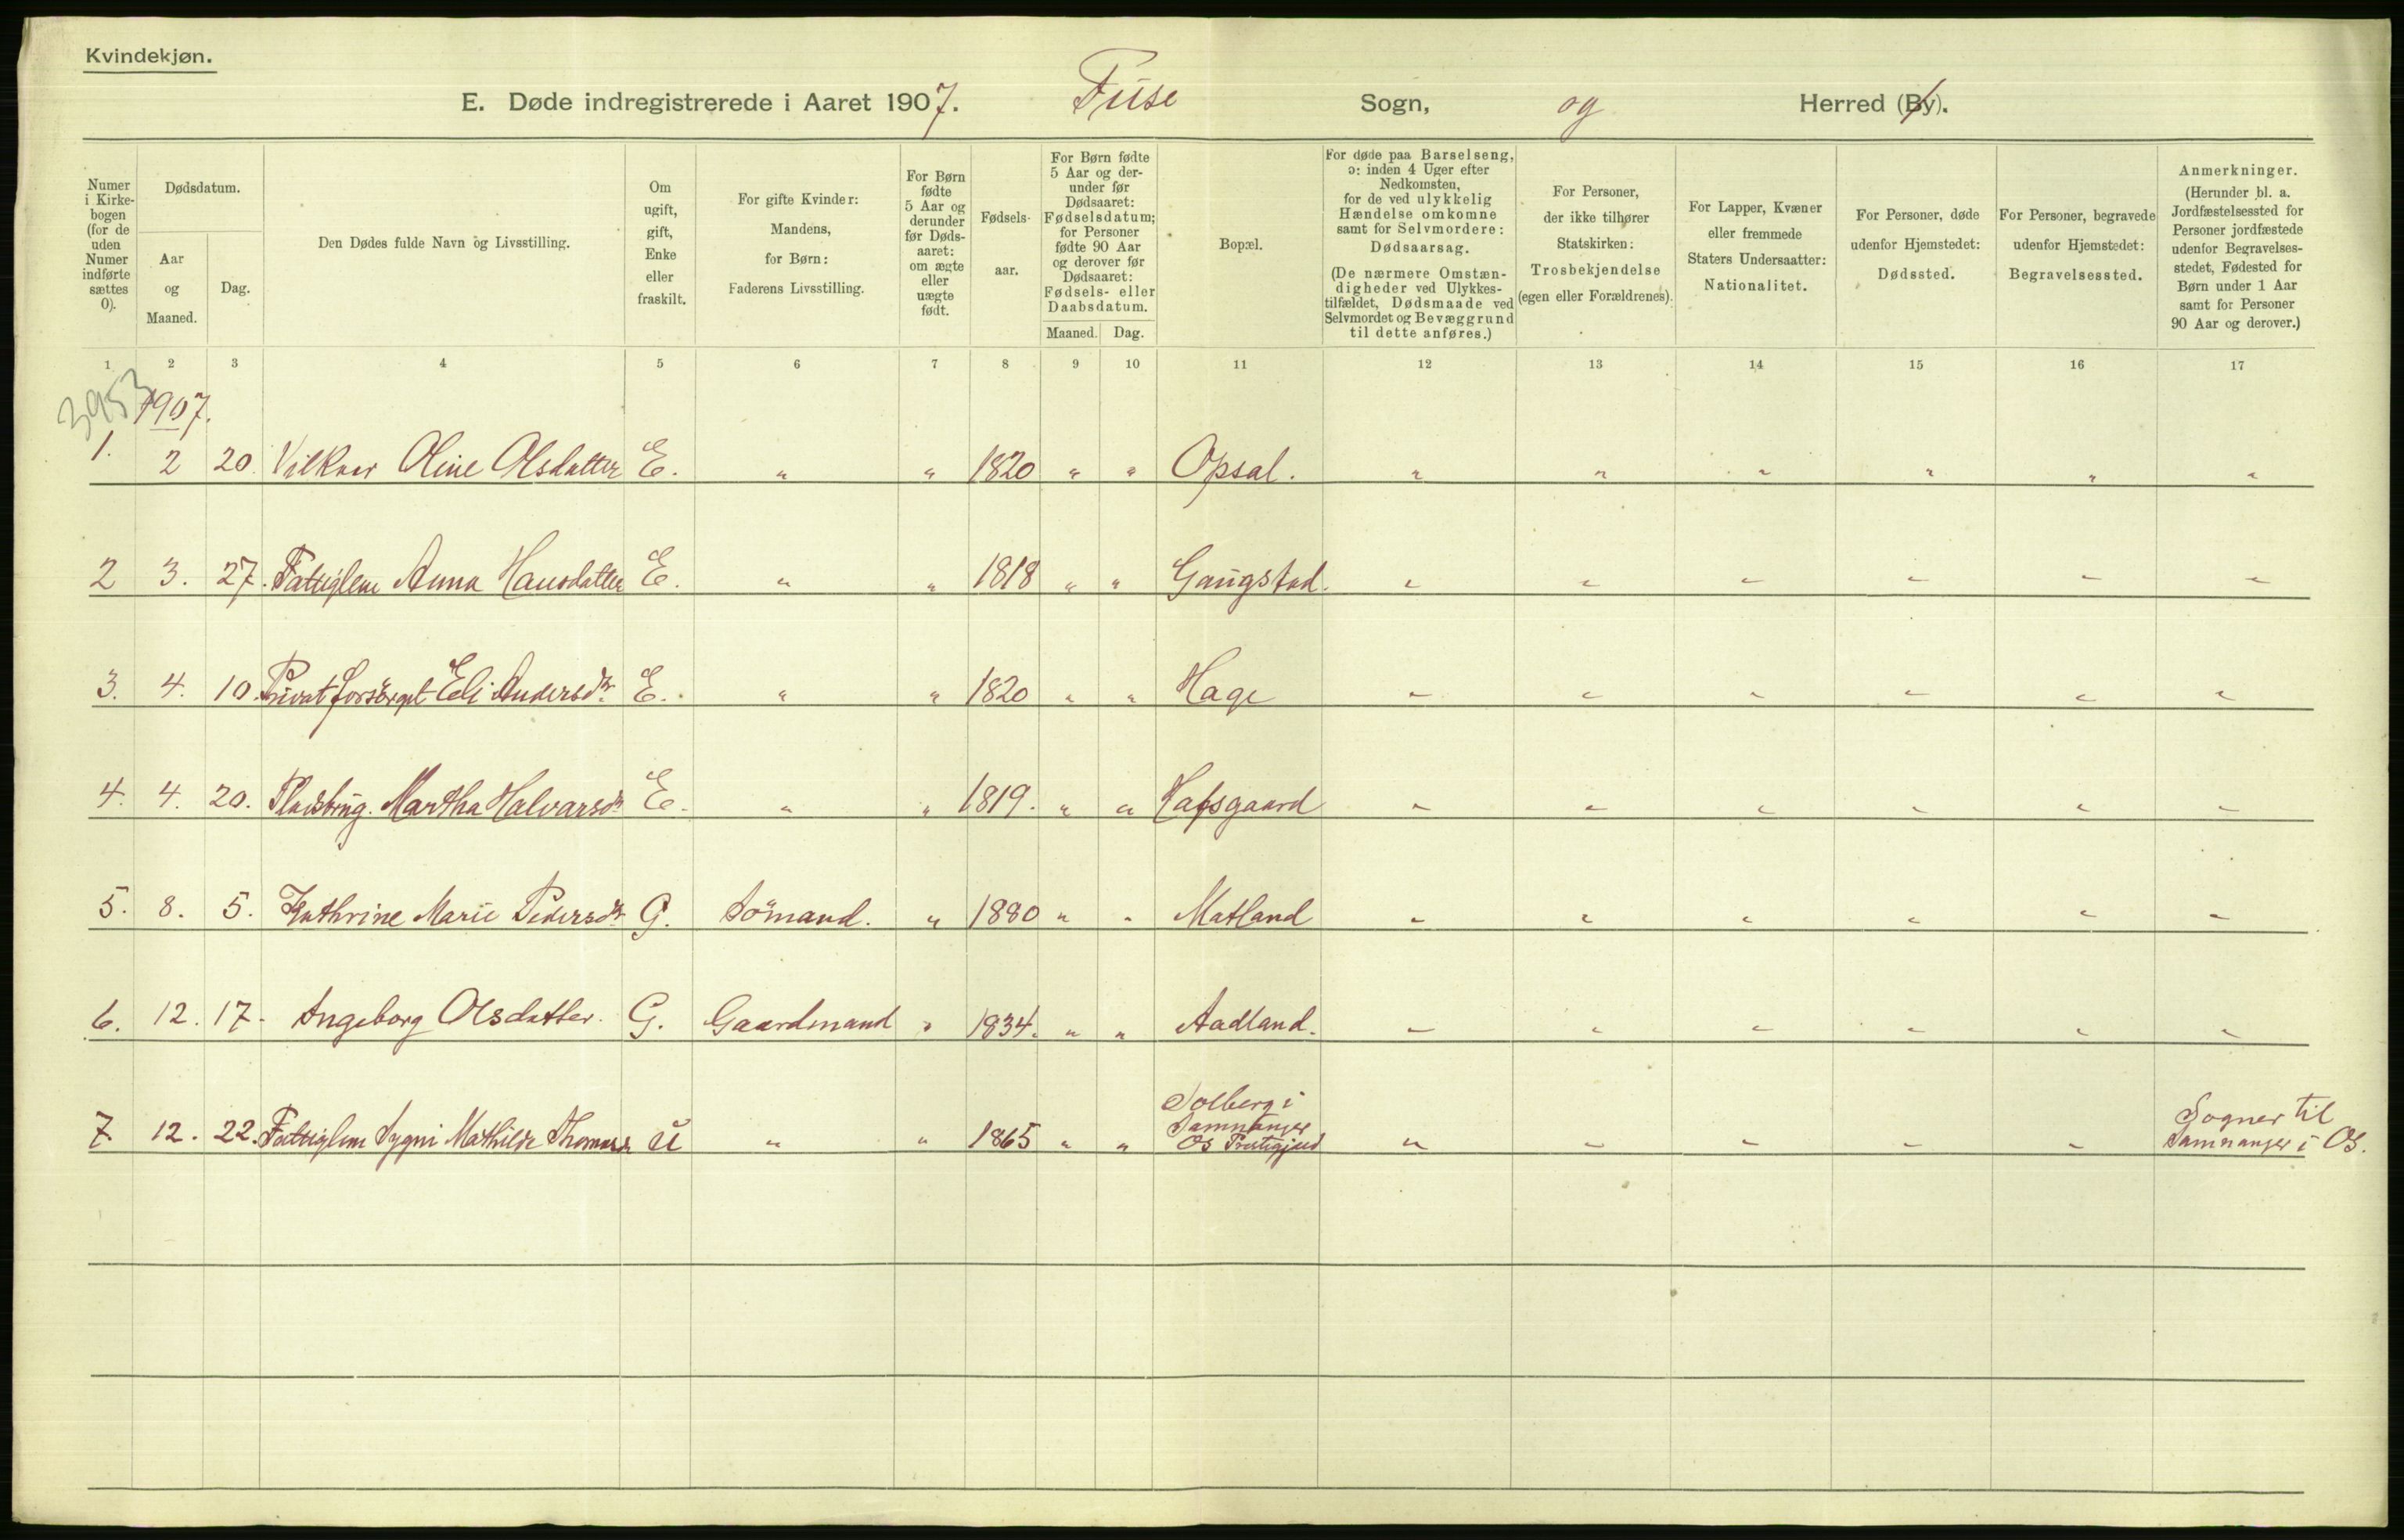 Kvindekjøn.
E. Døde indregistrerede i Aaret 1907. Fuse Sogn, og Herred (By).
Numer i Kirkebogen (for de uden Numer indførte sættes 0).
Dødsdatum.
Aar og Maaned.
Dag.
Den Dødes fulde Navn og Livsstilling.
Om ugift, gift, Enke eller fraskilt.
For gifte Kvinder: Mandens, for Børn: Faderens Livsstilling.
For Børn fødte 5 Aar og derunder før Dødsaaret: om ægte eller uægte født.
Fødselsaar.
For Børn fødte 5 Aar og derunder før Dødsaaret: Fødselsdatum; for Personer fødte 90 Aar og derover før Dødsaaret: Fødsels- eller Daabsdatum.
Maaned. Dag.
Bopæl.
For døde paa Barselseng, ɔ: inden 4 Uger efter Nedkomsten, for de ved ulykkelig Hændelse omkomne samt for Selvmordere: Dødsaarsag.
(De nærmere Omstændigheder ved Ulykkestilfældet, Dødsmaade ved Selvmordet og Bevæggrund til dette anføres.)
For Personer, der ikke tilhører Statskirken: Trosbekjendelse (egen eller Forældrenes).
For Lapper, Kvæner eller fremmede Staters Undersaatter: Nationalitet.
For Personer, døde udenfor Hjemstedet: Dødssted.
For Personer, begravede udenfor Hjemstedet: Begravelsessted.
Anmerkninger.
(Herunder bl. a. Jordfæstelsessted for Personer jordfæstede udenfor Begravelsesstedet, Fødested for Børn under 1 Aar samt for Personer 90 Aar og derover.)
1 2 3 4 5 6 7 8 9 10 11 12 13 14 15 16 17
3953 1907.
1. 2 20. Vilkaar Oline Olsdatter E. " " 1820 " " Opsal. " " " " " "
2 3. 27. Fattiglem Anna Hansdatter E. " " 1818 " " Gaugstad. " " " " " "
3. 4. 10. Privat forsörget Eli Andersdtr. E. " " 1820 " " Hage " " " " " "
4. 4. 20. Pladsbrug. Martha Halvarsdtr E. " " 1819. " " Hafsgaard " " " " " "
5. 8. 5. Kathrine Marie Pedersdtr G. Sömand. " 1880 " " Matland " " " " " "
6. 12. 17. Ingeborg Olsdatter. G. Gaardmand " 1834. " " Aadland. " " " " " "
7. 12. 22. Fattiglem Sygni Mathilde Thomasdr U " " 1865 " " Solberg i Samnanger Os Prestegjeld " " " " " Sogner til Samnanger i Os.